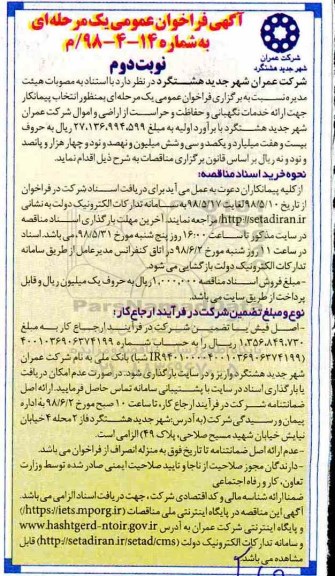 آگهی فراخوان عمومی یک مرحله ای
به شماره ۱۴-۴-۹۸/م
نوبت دوم
شرکت عمران
شهر جدید هشتگرد
شرکت عمران شهر جدید هشتگرد در نظر دارد با استناد به مصوبات هیئت
مدیره نسبت به برگزاری فراخوان عمومی یک مرحله ای بمنظور انتخاب پیمانکار
جهت ارائه خدمات نگهبانی و حفاظت و حراست از اراضی و اموال شرکت عمران
شهر جدید هشتگرد با برآورد اولیه به مبلغ ۲۷،۱۳۶،۹۹۴،۵۹۹ ریال به حروف
بیست و هفت میلیارد و یکصد و سی و شش میلیون و نهصد و نود و چهار هزار و پانصد
و نود و نه ریال بر اساس قانون برگزاری مناقصات به شرح ذیل اقدام نماید.
نحوه خرید اسناد مناقصه:
از کلیه پیمانکاران دعوت به عمل می آید برای دریافت اسناد شرکت در فراخوان
از تاریخ ۹۸/۵/۱۰ لغایت ۹۸/۵/۱۷ به سامانه تدارکات الکترونیک دولت به نشانی
http://setadiran.ir مراجعه نمایند. آخرین مهلت بارگذاری اسناد مناقصه
در سایت مذکور تا ساعت ۱۶:۰۰ روز پنج شنبه مورخ ۹۸/۵/۳۱ می باشد. اسناد
در ساعت ۱۱ روز شنبه مورخ ۹۸/۶/۲ در اتاق کنفرانس مدیرعامل از طریق سامانه
تدارکات الکترونیک دولت بازگشایی می شود.
- مبلغ فروش اسناد مناقصه ۱،۰۰۰،۰۰۰ ریال به حروف یک میلیون ریال و قابل
پرداخت از طریق سایت می باشد.
نوع و مبلغ تضمین شرکت در فرآیند ارجاع کار:
- اصل فیش یا تضمین شرکت در فرآیند ارجاع کار به مبلغ
۱،۳۵۶،۸۴۹،۷۳۰ ریال را به حساب شماره ۴۰۰۱۰۳۶۹۰۶۳۷۴۱۹۹
شبا) بانک ملی به نام شرکت عمران
شهر جدید هشتگرد واریز و در سایت بارگذاری شود. در صورت عدم امکان دریافت
یا بارگذاری اسناد در سایت با پشتیبانی سامانه تماس حاصل فرمایید. ارائه اصل
ضمانتنامه شرکت در فرآیند ارجاع کار تا ساعت ۱۰ صبح مورخ ۹۸/۶/۲ به اداره
پیمان و رسیدگی شرکت (به آدرس: شهر جدید هشتگرد فاز ۲ محله ۴ خیابان
نیایش خیابان شهید مسیح صلاحی، پلاک ۴۹) الزامی است.
- عدم ارائه اصل ضمانتنامه تا تاریخ فوق به منزله انصراف از فراخوان می باشد.
- دارندگان مجوز صلاحیت از ناجا و تایید صلاحیت ایمنی صادر شده توسط وزارت
تعاون، کار و رفاه اجتماعی
ضمنا ارائه شناسه مالی و کد اقتصادی شرکت، جهت دریافت اسناد الزامی می باشد.
آگهی این مناقصه در پایگاه اینترنتی ملی مناقصات (https://iets.mporg.ir)
و پایگاه اینترنتی شرکت عمران به آدرس www.hashtgerd-ntoir.gov.ir
و سامانه تدارکات الکترونیک دولت (http://setadiran.ir/setad/cms) قابل
مشاهده می باشد.